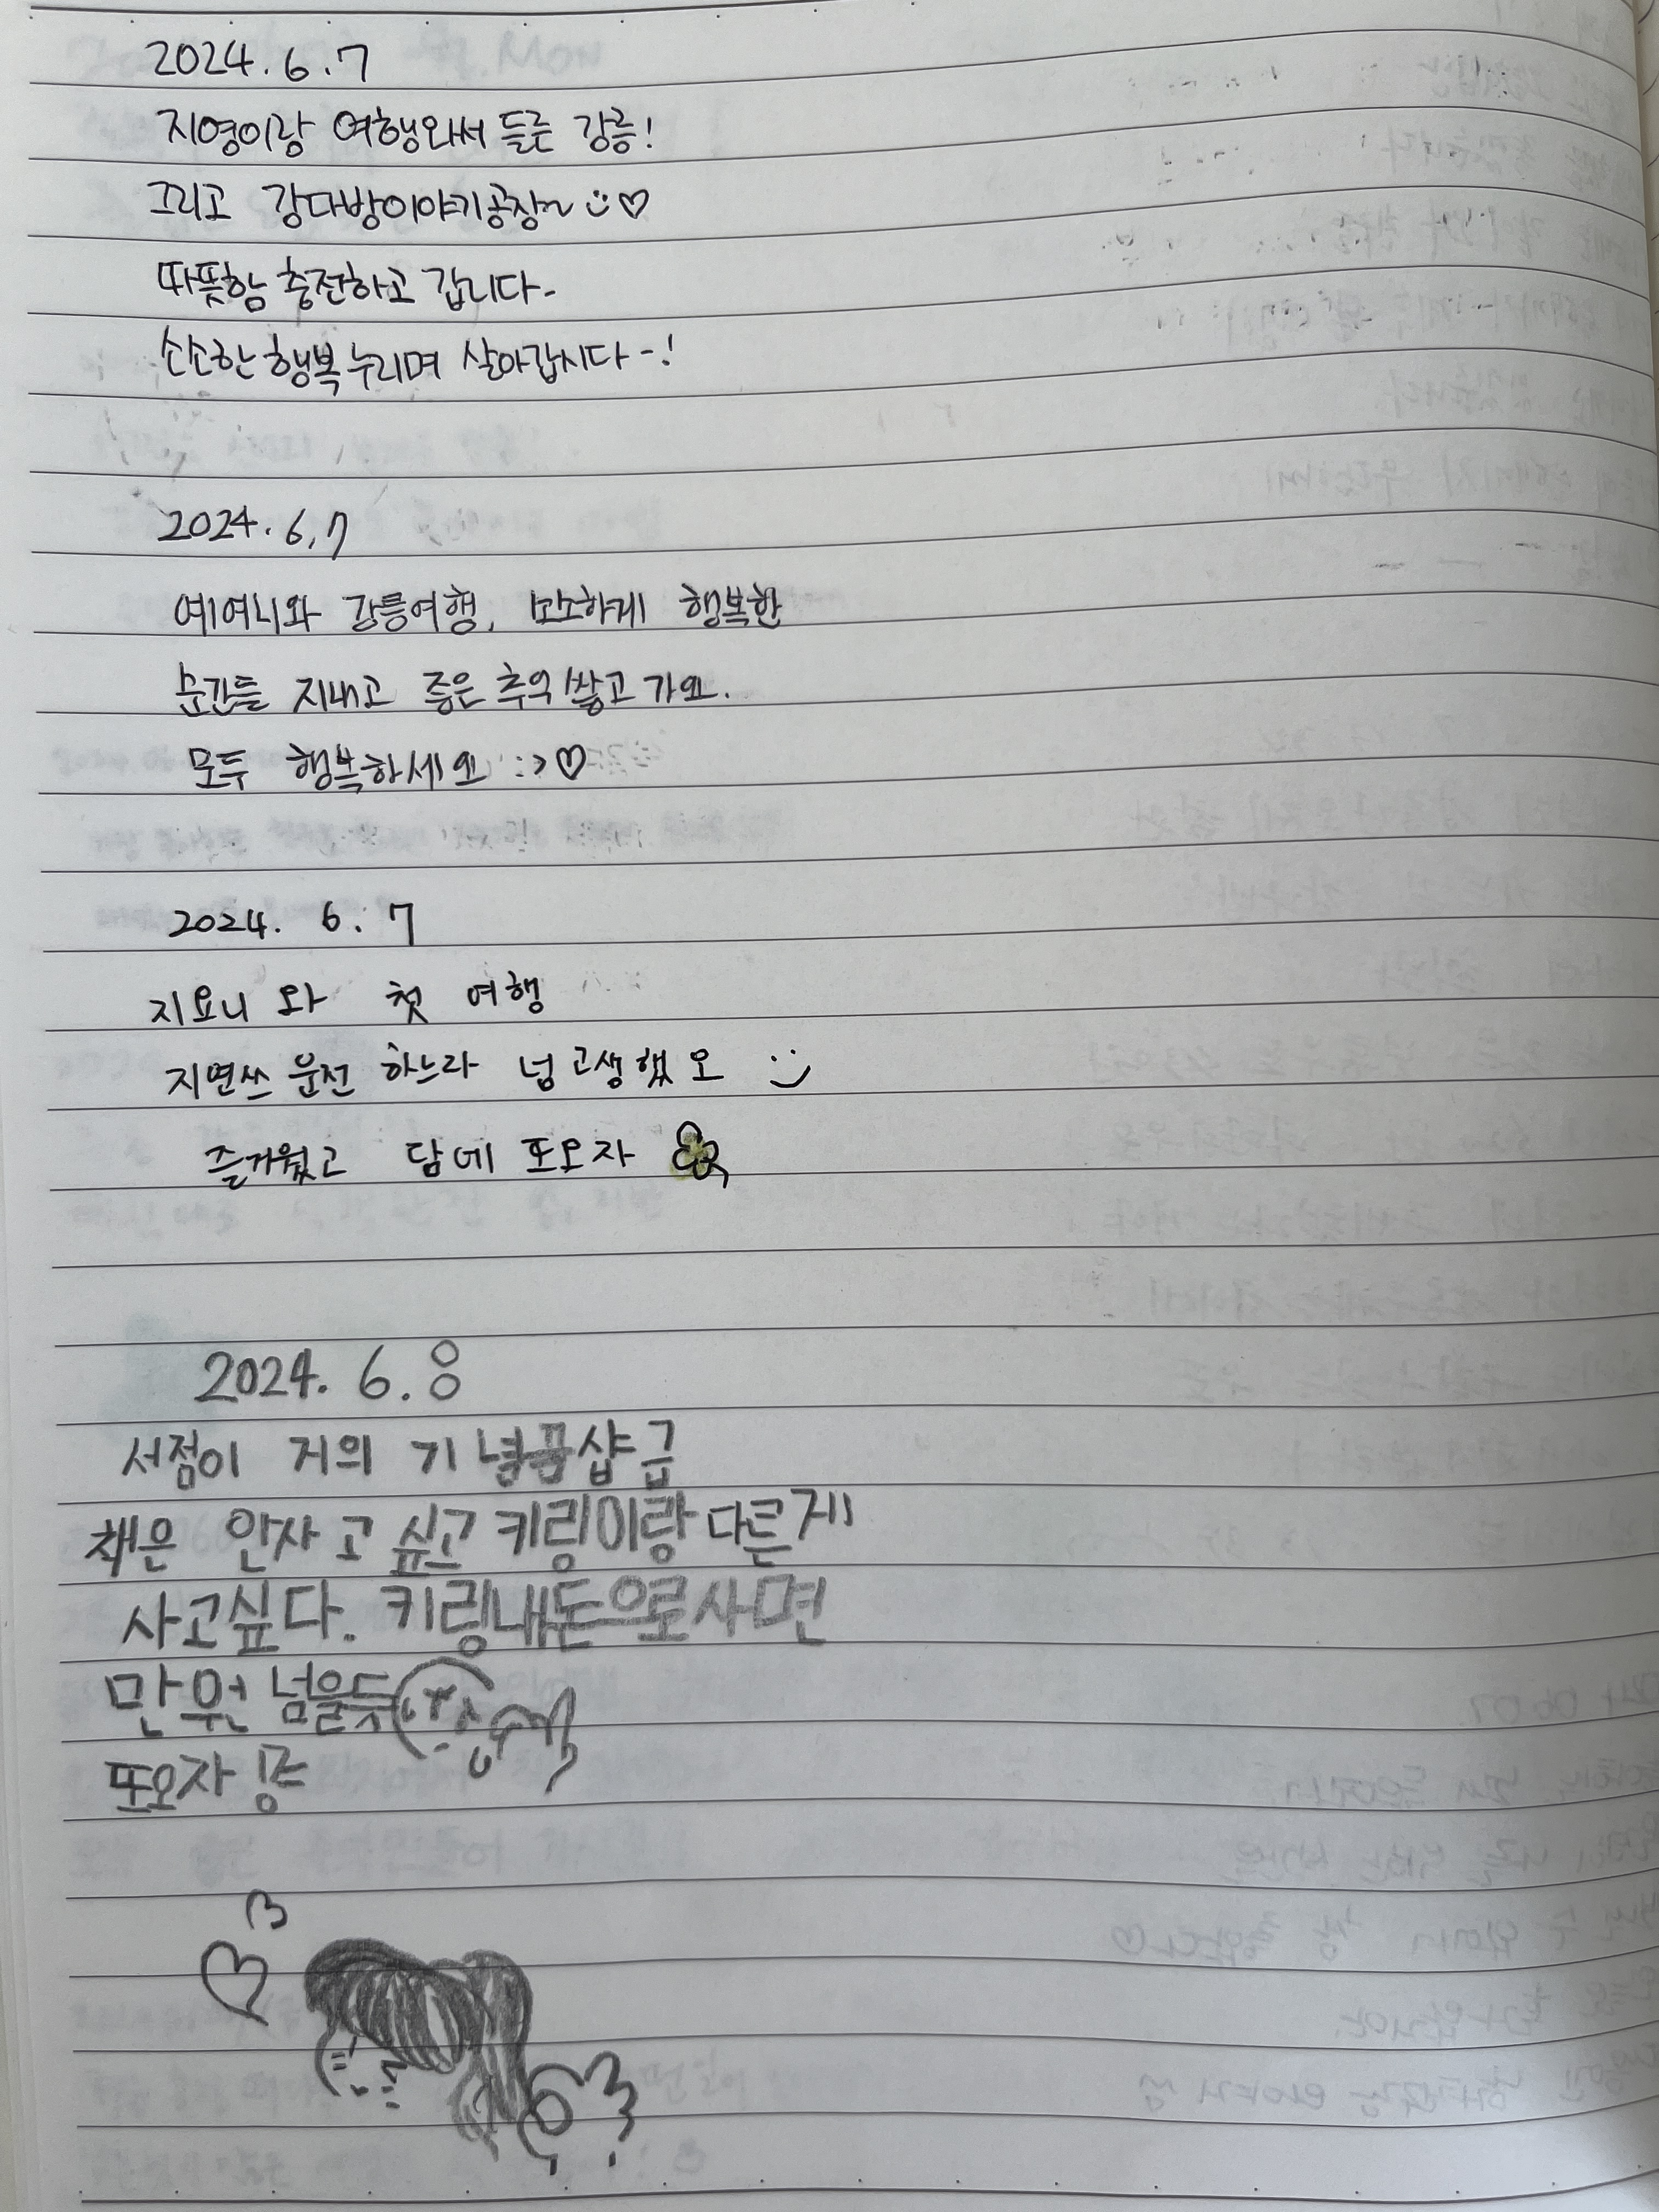 2024.6.7
지영이랑 여행와서 들른 강릉!
그리고 강다방이야기공장~ :)♡
따뜻함 충전하고 갑니다-
소소한 행복 누리며 살아갑시다-!
2024.6.7
예여니와 강릉여행, 소소하게 행복한
순간들 지내고 좋은 추억 쌓고 가요.
모두 행복하세요 :>♡
2024. 6. 7
지요니 와 첫 여행
지연쓰 운전 하느라 넘 고생했오 :)
즐거웠고 담에 또오자
2024. 6. 8
서점이 거의 기념품샵 급
책은 안사고 싶고 키링이랑 다른게
사고싶다. 키링내돈으로사면
만 원 넘을듯
또오자